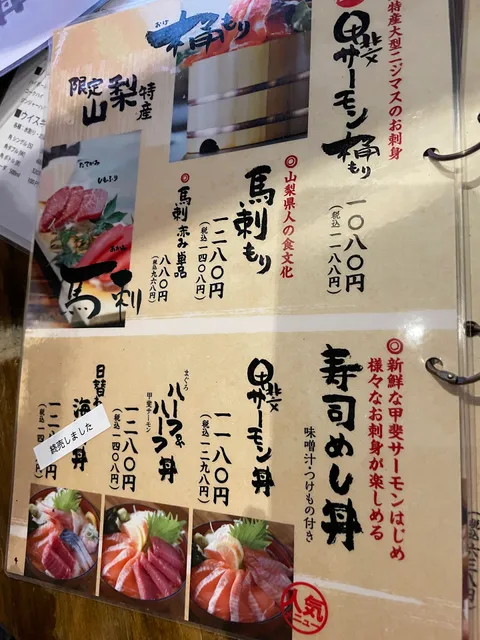 特産大型ニジマスのお刺身
甲斐サーモン桶もり
一〇八〇円
(税込一一八八円)
桶もり
おけ
限定
山梨特産
◎山梨県人の食文化
馬刺もり
一二八〇円
(税込一四〇八円)
馬刺赤み単品
八八〇円
(税込九六八円)
たてがみ
しもふり
あかみ
馬刺
◎新鮮な甲斐サーモンはじめ
様々なお刺身が楽しめる
寿司めし丼
味噌汁・つけもの付き
甲斐サーモン丼
一一八〇円
(税込一二九八円)
まぐろ
ハーフ&ハーフ丼
甲斐サーモン
一二八〇円
(税込一四〇八円)
日替
海 丼
終売しました
人気
メニュー
■ウイス